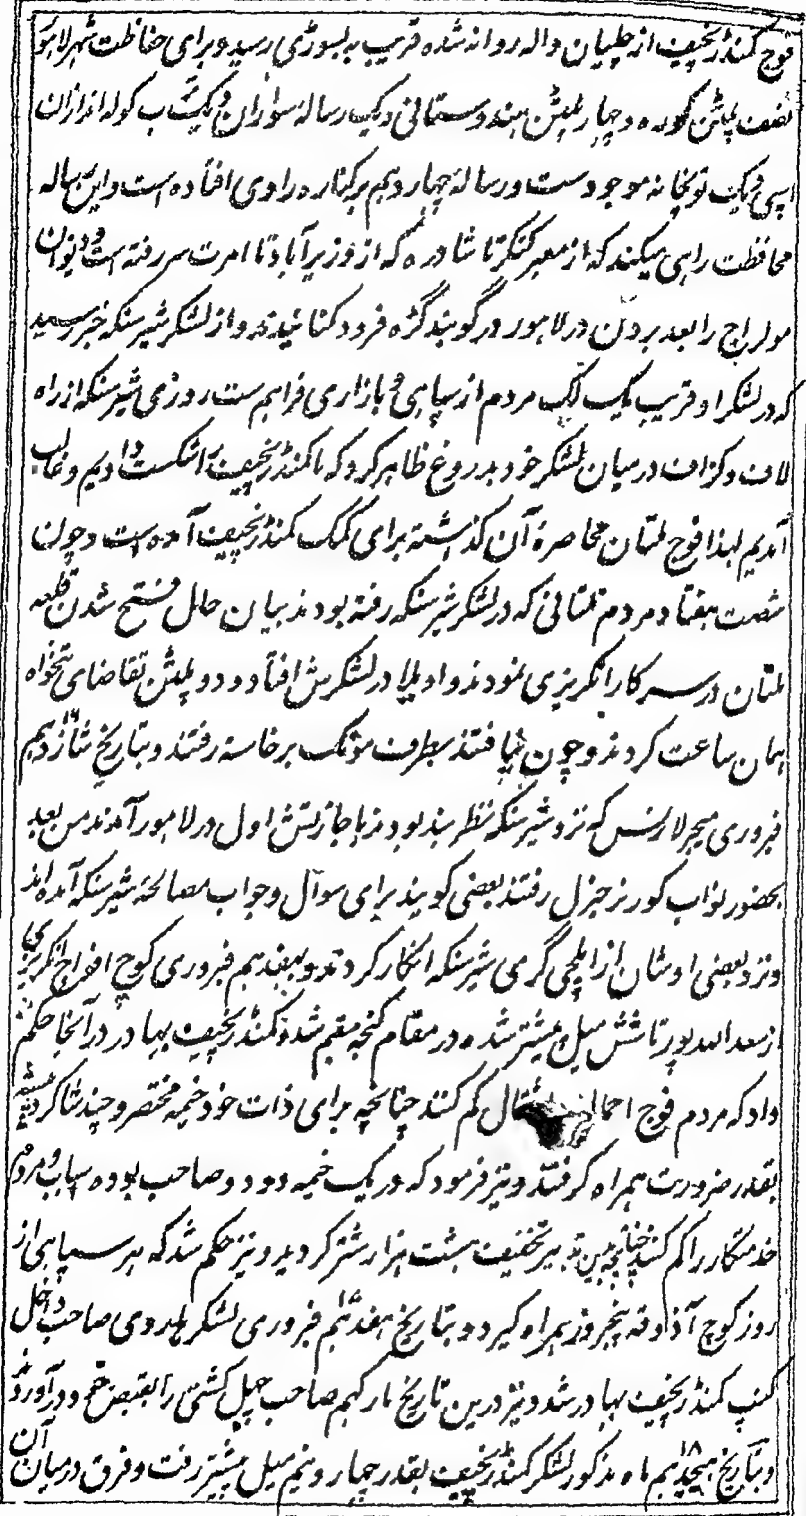 فوج کمندرنچیف از چلیان واله روانه شده قریب به لسوڑی رسید و برای حفاظت شهر لاهور
نصف پلٹن گوره و چهار پلٹن هندوستانی و یک رساله سواران و یک ب گوله اندازان
اسپی و یک توپخانه موجودست و رساله چهاردهم بر کناره راوی افتاده است و این رساله
محافظت راهی میکند که از معبر کنکرتا شادره که از وزیرآباد تا امرت سر رفته است و دیوان
مولراج را بعد بردن در لاهور در گوبند گڑه فرود کنانیدند و از لشکر شیر سنکه خبر رسید
که در لشکر او قریب یک لک مردم از سپاهی و بازاری فراهم ست روزی شیر سنکه از راه
لاف و کزاف درمیان لشکر خود بدروغ ظاهر کرد که ما کمندرنچیف را شکست دادیم و غالب
آمدیم لهذا فوج ملتان محاصره آن گذاشته برای کمک کمندرنچیف آمده است و چون
شصت هفتاد مردم ملتانی که در لشکر شیر سنکه رفته بودند بیان حال فتح شدن قلعه
ملتان در سرکار انگریزی نمودند واویلا در لشکرش افتاد و دو پلٹن تقاضای تنخواه
همان ساعت کردند و چون نیافتند بطرف مونک برخاسته رفتند و بتاریخ شانزدهم ۱۶
فبروری میجر لارنس که نزد شیر سنکه نظر بند بودند باجازتش اول در لاهور آمدند من بعد
بحضور نواب گورنر جنرل رفتند بعضی گویند برای سوال و جواب مصالحه شیر سنکه آمده اند
و نزد بعضی اوشان از ایلچی گری شیر سنکه انکار کردند و بهفدهم فبروری کوچ افواج انگریزی
از سعد الله پور تا شش میل پیشتر شده در مقام کنجه مقیم شد و کمندرنچیف بهادر در آنجا حکم
داد که مردم فوج احمال اثقال کم کنند چنانچه برای ذات خود خیمه مختصر و چند شاگرد پیشه
بقدر ضرورت همراه گرفتند و نیز فرمود که در یک خیمه دو دو صاحب بوده اسباب و مردم
خدمتگار را کم کنند چنانچه بدین تدبیر تخفیف هشت هزار شتر گردید و نیز حکم شد که هر سپاهی از
روز کوچ آذوقه پنجروزه همراه گیرد و بتاریخ هفدهم ۱۷ فبروری لشکر مارودی صاحب داخل
کنپ کمندرنچیف بهادر شد و نیز درین تاریخ مارکهم صاحب چهل کشتی را بقبض خود درآوردند
و بتاریخ هیجدهم ۱۸ ماه مذکور لشکر کمندرنچیف بقدر چهار و نیم میل پیشتر رفت و فرق درمیان آن